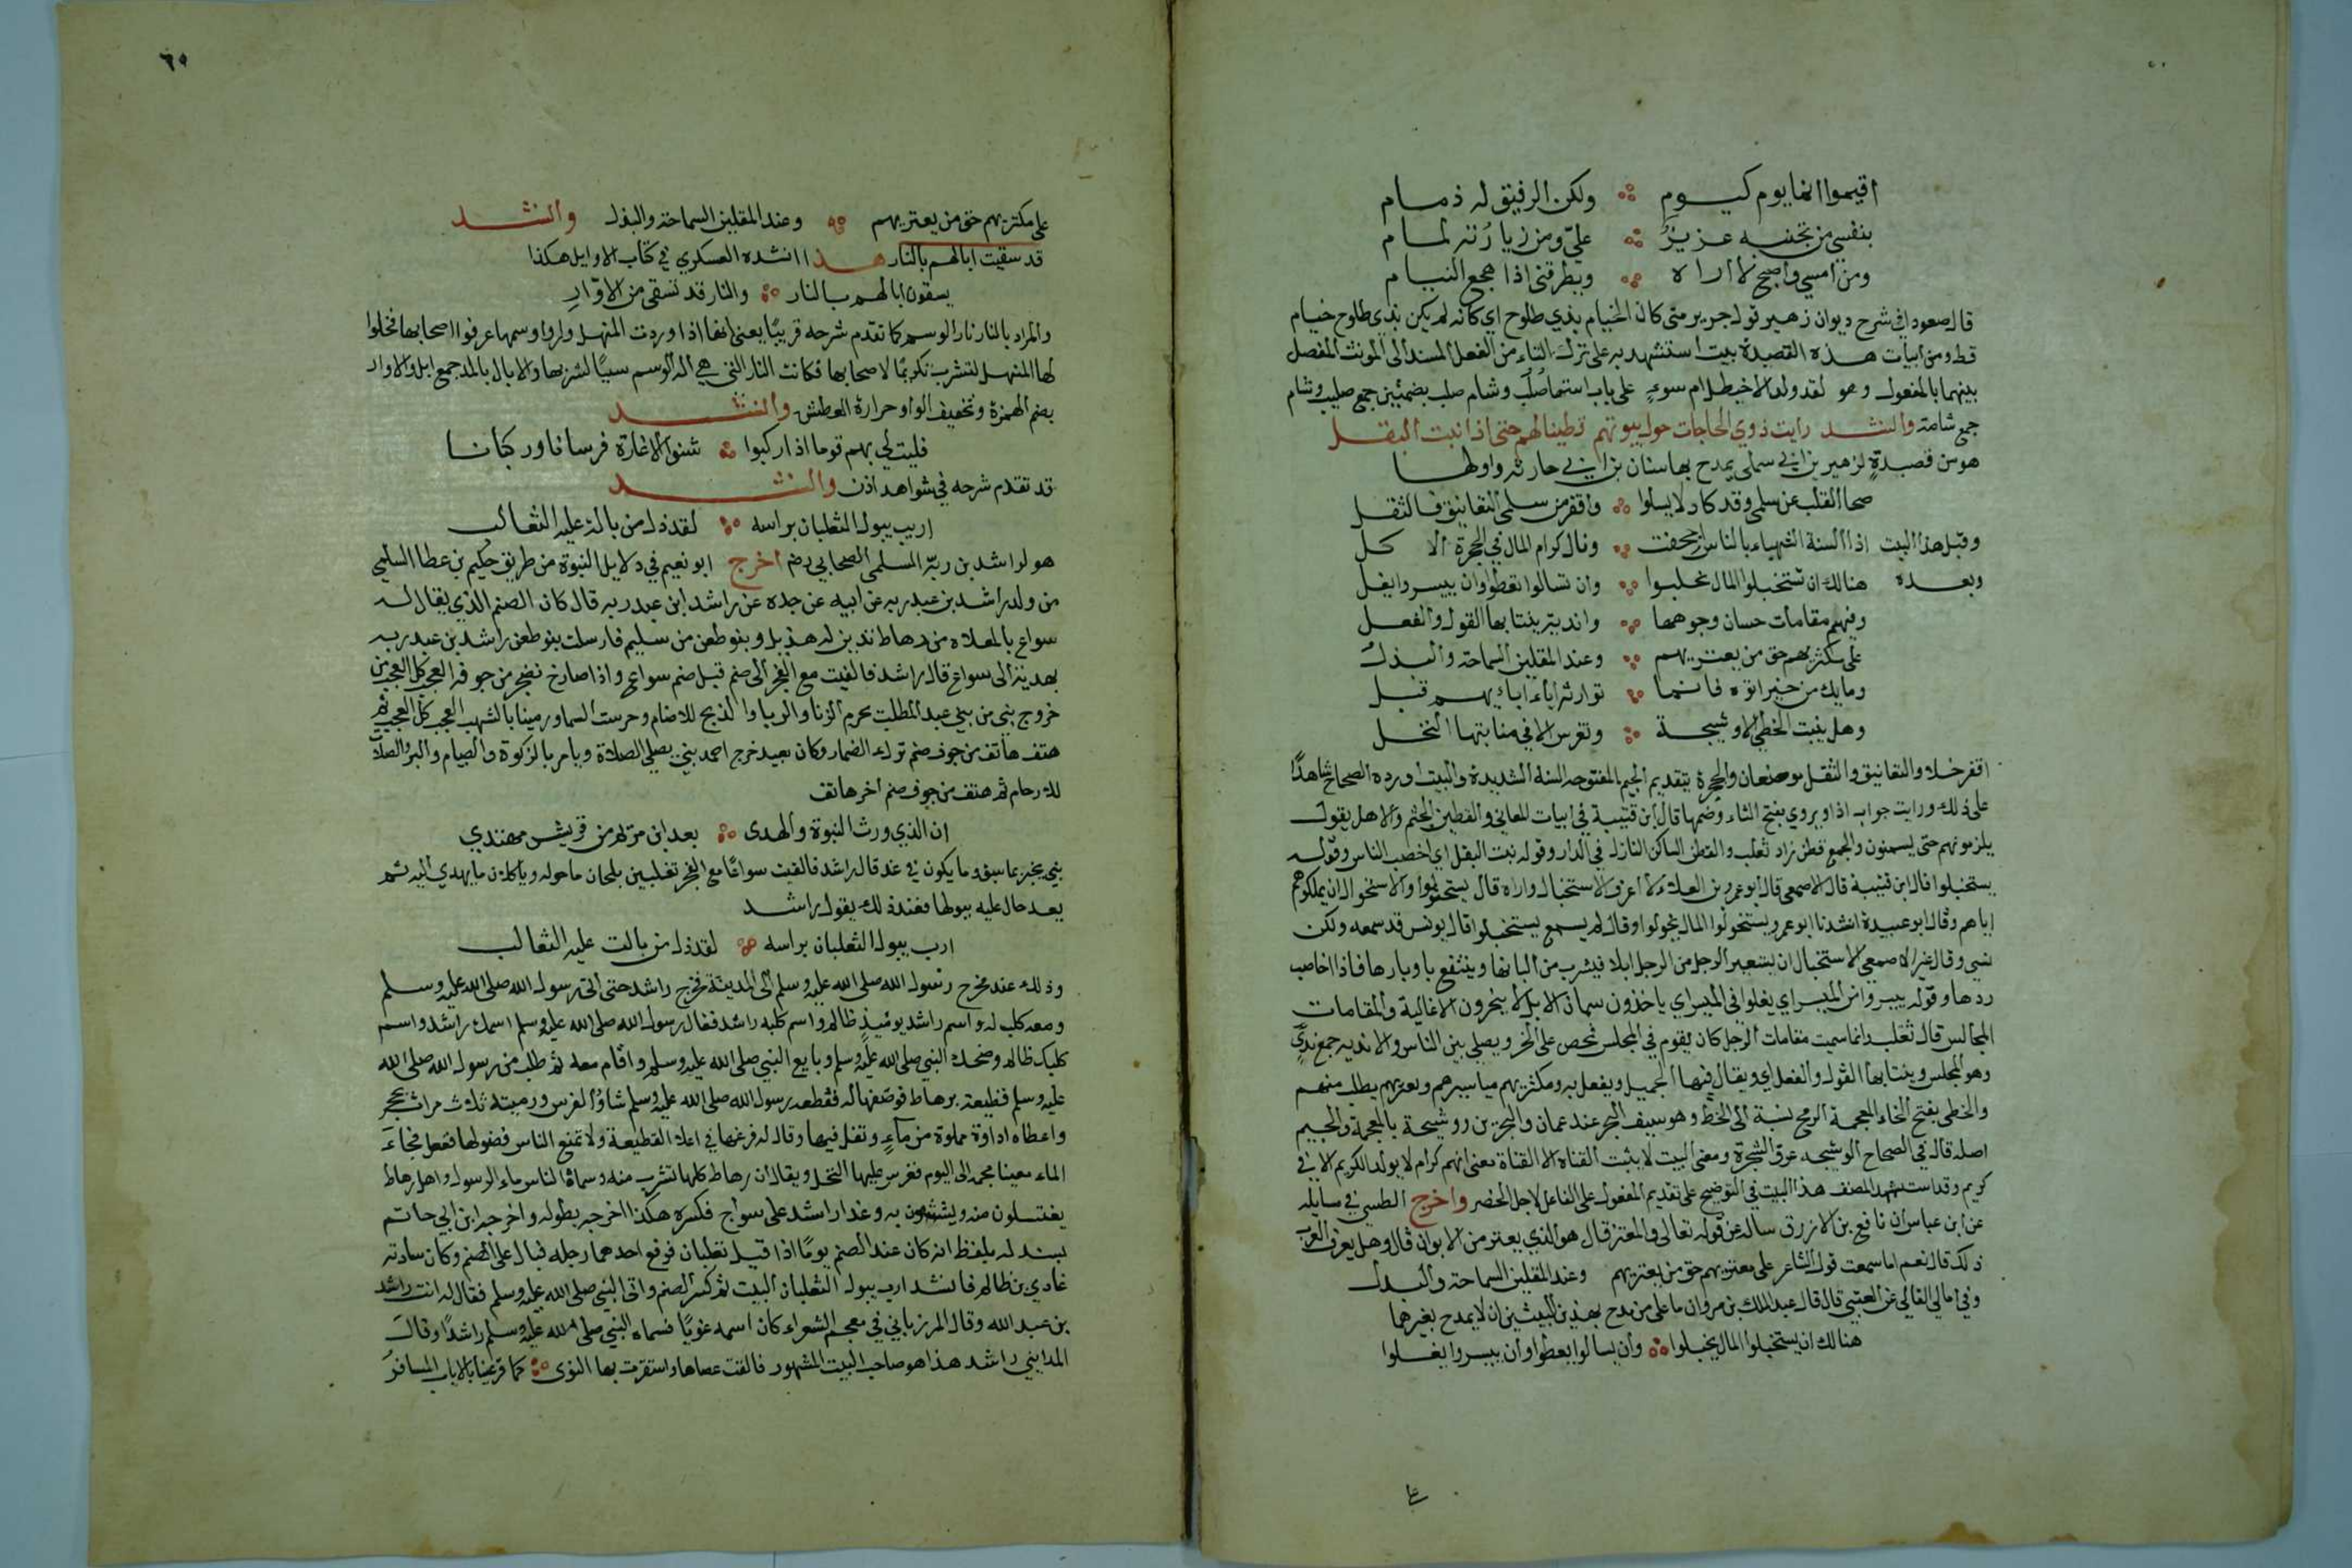 اقيموا انما يوم كيوم ولكن الرفيق له ذمام
بنفسي من تجنبه عزيز عليّ ومن زيارته لمام
ومن امسي واصبح لا اراه ويطرقني اذا هجع النيام
قال صعودا في شرح ديوان زهير قول جرير متى كان الخيام بذي طلوح اي كانه لم يكن بذي طلوح خيام
قط ومن ابيات هذه القصيدة بيت استشهد به على ترك التاء من الفعل المسند الى المونث المفصل
بينهما بالمفعول وهو لقد ولد الاخيطل ام سوء على باب استها صلب وشام صلب بضمتين جمع صليب وشام
جمع شامة وانشد رايت ذوي الحاجات حول بيوتهم قطينا لهم حتى اذا نبت البقل
هو من قصيدة لزهير بن ابي سلمى يمدح بها سنان بن ابي حارثه واولها
صحا القلب عن سلمى وقد كاد لا يسلوا واقفر من سلمى التعانيق فالثقل
وقبل هذا البيت اذا السنة الشهباء بالناس اجحفت ونال كرام المال في الحجرة الاكل
وبعده هنالك ان تستخبلوا المال يخبلوا وان تسالوا تعطوا وان ييسروا يغلوا
وفيهم مقامات حسان وجوهها واندية ينتابها القول والفعل
على مكثريهم حق من يعتريهم وعند المقلين السماحة والبذل
وما يك من خير اتوه فانما توارثه اباء ابايهم قبل
وهل ينبت الخطي الا وشيجة وتغرس الا في منابتها النخل
اقفر خلا والتعانيق والثقل موضعان والحجرة بتقديم الجيم المفتوحه السنة الشديدة والبيت اورده الصحاح شاهدًا
على ذلك ورايت جواب اذا ويروي بفتح التاء وضمها قال ابن قتيبة في ابيات المعاني والقطين الحشم والاهل يقول
يلزمونهم حتى يسمنون والجمع قطن زاد ثعلب والقطن الساكن النازل في الدار وقوله نبت البقل اي اخصب الناس وقوله
يستخبلوا قال ابن قتيبة قال الاصمعي قال ابو عمرو بن العلاء لا اعرف الاستخبال واراه قال يستخولوا والاستخوال ان يملكوهم
اياهم وقال ابو عبيدة انشدنا ابو عمرو يستخولوا المال يخولوا وقال لم يسمع يستخبلوا قال يونس قد سمعه ولكن
نسي وقال غير الاصمعي الاستخبال ان يستعير الرجل من الرجل ابلا فيشرب من البانها وينتفع باوبارها فاذا اخاصب
ردها وقوله ييسروا من الميسر اي يغلوا في الميسر اي ياخذون سمان الابل لا ينحرون الا غالية والمقامات
المجالس قال ثعلب وانما سميت مقامات الرجل كان يقوم في المجلس فيحض على الخير ويصلح بين الناس والانديه جمع نديّ
وهو المجلس وينتابها القول والفعل اي ويقال فيها الجميل ويفعل به ومكثريهم مياسيرهم ويعتريهم يطلب منهم
والخطي بفتح الخاء المعجمة الرمح نسبة الى الخط وهو سيف البحر عند عمان والبحرين ووشيجة بالمعجمة والجيم
اصله قال في الصحاح الوشيجه عرق الشجرة ومعنى البيت لا ينبت القناة الا القناة يعني انهم كرام لا يولد الكريم الا في
كريم وقد استشهد المصنف هذا البيت في التوضيح على تقديم المفعول على الفاعل لاجل الحصر واخرج الطستي في مسايله
عن ابن عباس ان نافع بن الازرق ساله عن قوله تعالى والمعتر قال هو الذي يعتر من الابواب قال وهل يعرف العرب
ذلك قال نعم اما سمعت قول الشاعر على معتريهم حق من يعتريهم وعند المقلين السماحة والبذل
وفي امالي القالي عن العتبي قال قال عبد الملك بن مروان ما على من مدح بهذين البيتين ان لا يمدح بغيرهما
هنالك ان يستخبلوا المال يخبلوا وان يسالوا يعطوا وان ييسروا يغلوا
٦٠
على مكثريهم حق من يعتريهم وعند المقلين السماحة والبذل وانشد
قد سقيت ابالهم بالنار هذا انشده العسكري في كتاب الاوايل هكذا
يسقون ابالهم بالنار والنار قد تسقى من الاوّار
والمراد بالنار نار الوسم كما تقدم شرحه قريبًا يعني انها اذا وردت المنهل وراوا وسمها عرفوا اصحابها فخلوا
لها المنهل لتشرب تكريمًا لاصحابها فكانت النار التي هي الة الوسم سببًا لشربها والابال بالمد جمع ابل والاوار
بضم الهمزة وتخفيف الواو حرارة العطش وانشد
فليت لي بهم قوما اذا ركبوا شنوا الاغارة فرسانا وركبانا
قد تقدم شرحه في شواهد اذن وانشد
ارب يبول الثعلبان براسه لقد ذل من بالت عليه الثعالب
هو لراشد بن ربّه السلمى الصحابي رضه اخرج ابو نعيم في دلايل النبوة من طريق حكيم بن عطا السلمي
من ولد راشد بن عبد ربه عن ابيه عن جده عن راشد ابن عبد ربه قال كان الصنم الذي يقال له
سواع بالمعلاه من رهاط تدين له هذيل وبنو ظفر من سليم فارسلت بنو ظفر راشد بن عبد ربه
بهدية الى سواع قال راشد فالفيت مع الفجر الى صنم قبل صنم سواع واذا صارخ يصرخ من جوفه العجب كل العجب من
خروج نبي من بني عبد المطلب يحرم الزنا والربا والذبح للاصنام وحرست السما ورمينا بالشهب العجب كل العجب ثم
هتف هاتف من جوف صنم ترك الضمار وكان يعبد خرج احمد نبي يصلي الصلاة ويامر بالزكوة والصيام والبر والصلات
للارحام ثم هتف من جوف صنم اخر هاتف
ان الذي ورث النبوة والهدى بعد ابن مريم من قريش مهتدي
نبي يخبر بما سبق وما يكون في غد قال راشد فالفيت سواعًا مع الفجر ثعلبين يلحسان ما حوله وياكلان ما يهدي اليه ثم
يعد حال عليه ببولها فعند ذلك يقول راشد
ارب يبول الثعلبان براسه لقد ذل من بالت عليه الثعالب
وذلك عند مخرج رسول الله صلى الله عليه وسلم الى المدينة فخرج راشد حتى اتى رسول الله صلى الله عليه وسلم
ومعه كلب له واسم راشد يوميذ ظالم واسم كلبه راشد فقال رسول الله صلى الله عليه وسلم اسمك راشد واسم
كلبك ظالم وضحك النبي صلى الله عليه وسلم وبايع النبي صلى الله عليه وسلم واقام معه ثم طلب من رسول الله صلى الله
عليه وسلم قطيعة برهاط فوصفها له فقطعه رسول الله صلى الله عليه وسلم شاو الفرس ورميته ثلاث مرات بحجر
واعطاه اداوة مملوة من ماء وتفل فيها وقال له فرغها في اعلا القطيعة ولا تمنع الناس فضولها ففعل فجاء
الماء معينا مجمه الى اليوم فغرس عليها النخل ويقال ان رهاط كلها تشرب منه وسماه الناس ماء الرسول واهل رهاط
يغتسلون منه ويشتفون به وغدا راشد على سواع فكسره هكذا اخرجه بطوله واخرجه ابن ابي حاتم
بسند له بلفظ انه كان عند الصنم يومًا اذا قبل ثعلبان فرفع احدهما رجله فبال على الصنم وكان سادنه
غادي بن ظالم فانشد ارب يبول الثعلبان البيت ثم كسر الصنم واتى النبي صلى الله عليه وسلم فقال له انت راشد
بن عبد الله وقال المرزباني في معجم الشعراء كان اسمه غويًا فسماه النبي صلى الله عليه وسلم راشدًا وقال
المدايني راشد هذا هو صاحب البيت المشهور فالقت عصاها واستقرت بها النوى كما قر عينا بالاياب المسافر